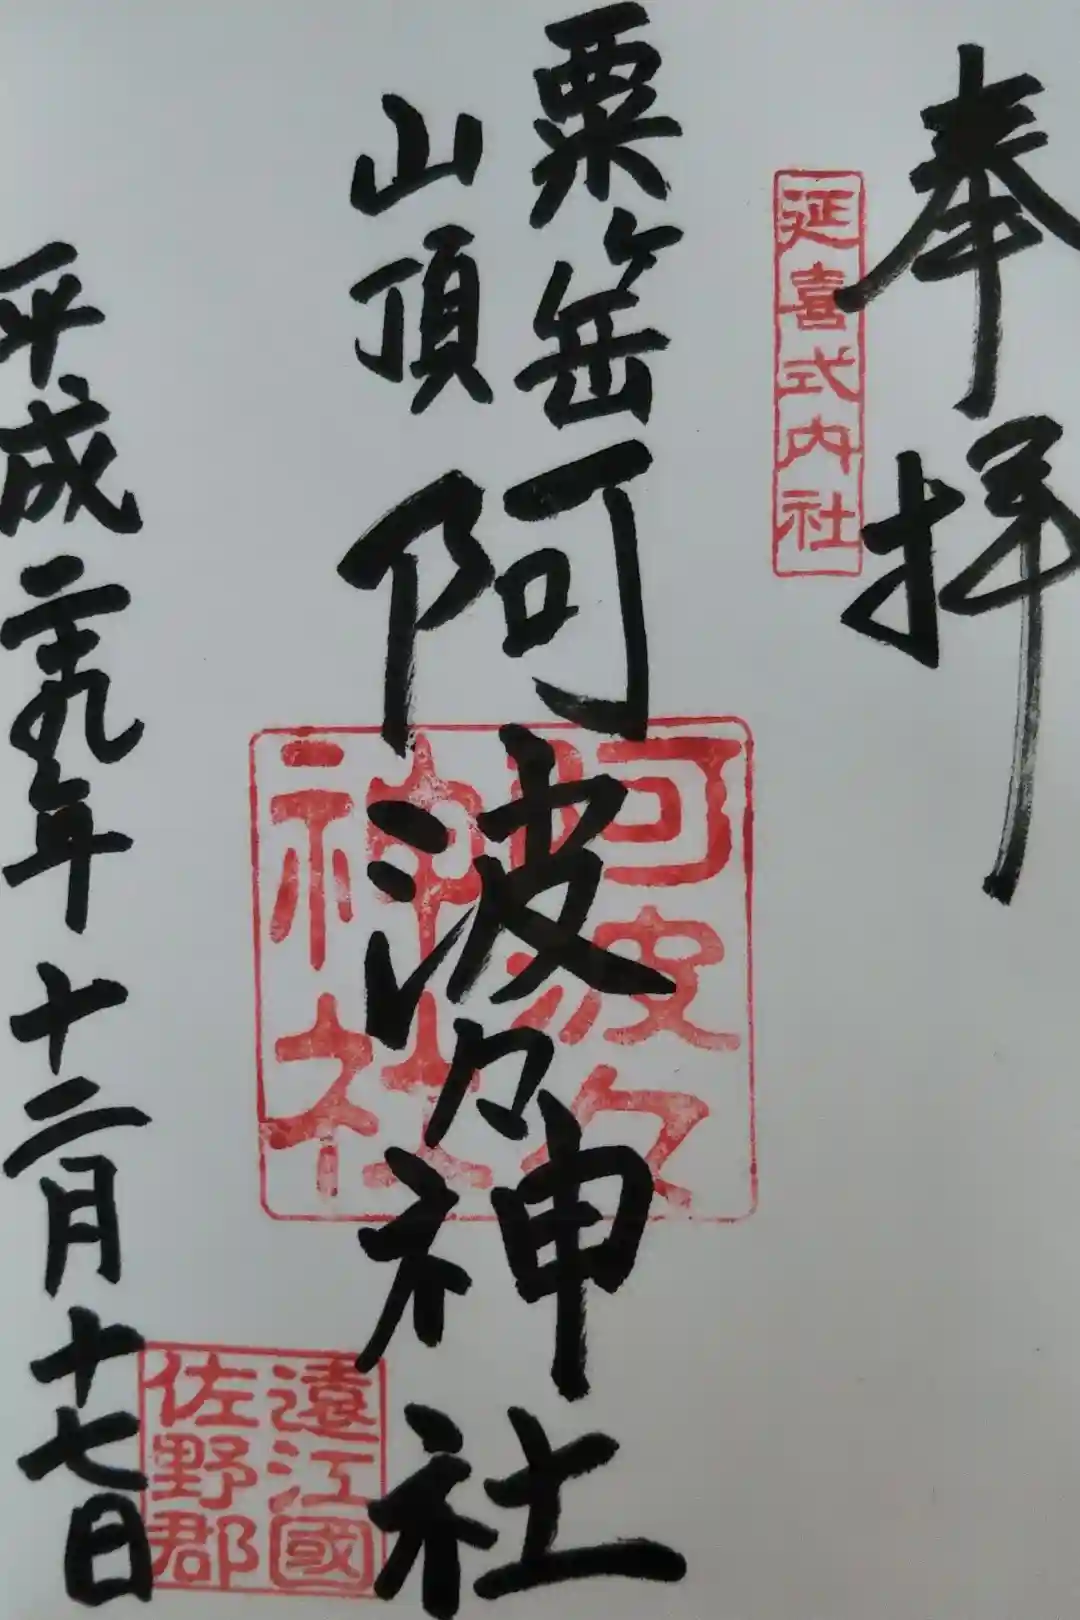 奉拝
延喜式内社
粟ヶ岳
山頂
阿波々神社
阿波々
神社
平成二十九年十二月十七日
遠江國
佐野郡